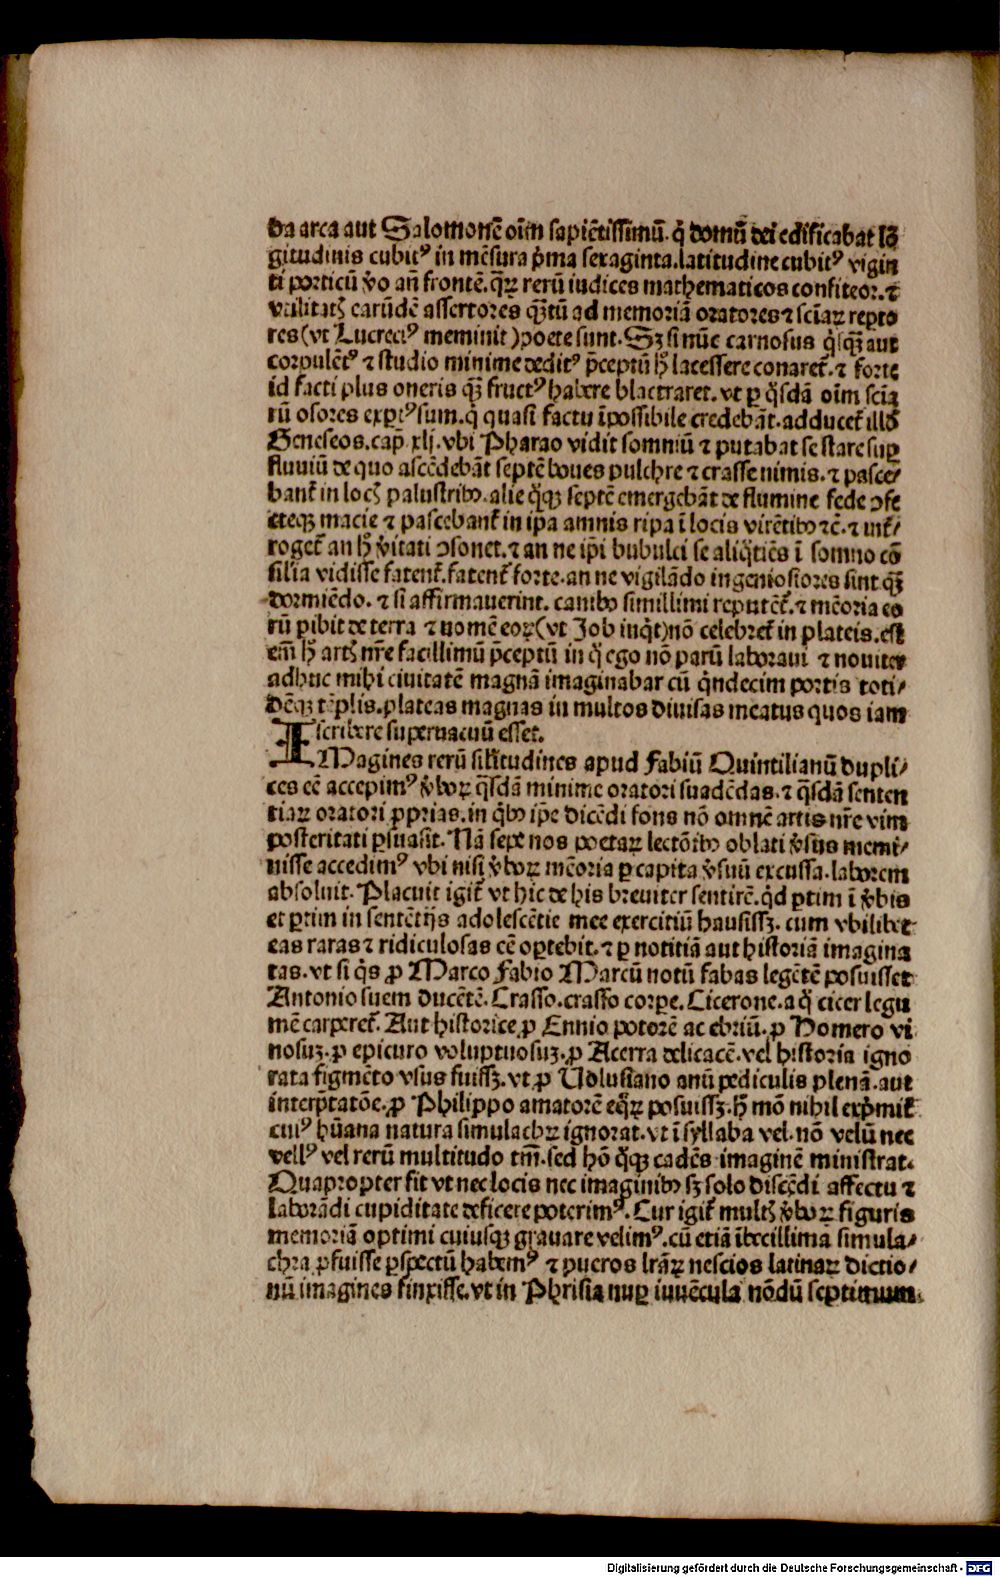 da arca aut Salomonē oīm sapiētissimū. q̇ domū dei edificabat lō
gitudinis cubitꝰ in mēsura p̓ma sexaginta. latitudine cubitꝰ vigin
ti porticū ṽo an̄ frontē. q̄ꝝ rerū iudices mathematicos confiteor. ⁊
vtilitatꝭ earūdē assertores q̄ꝫtū ad memoriā oratores ⁊ sciāꝝ repto
res (vt Lucreciꝰ meminit) poete sunt. Sꝫ si nūc carnosus q̇sq̄ꝫ aut
corpulētꝰ ⁊ studio minime deditꝰ p̄ceptū hꝭ lacessere conaret᷑. ⁊ forte
id facti plus oneris q̄ꝫ fructꝰ habere blactraret. vt ꝑ q̄sdā oīm sciaꝝ
rū osores exꝑtꝰ sum. q̇ quasi factu īpossibile credebāt. adducet᷑ illd̄
Geneseos. cap̄. xlj. vbi Pharao vidit somniū ⁊ putabat se stare suꝑ
fluuiū de quo ascēdebāt septē boues pulchre ⁊ crasse nimis. ⁊ pasce⸗
bant᷑ in locꝭ palustribꝰ. alie q̊qꝫ septē emergebāt de flumine fede ꝯfe
cteqꝫ macie ⁊ pascebant᷑ in ip̄a amnis ripa ī locis virētibꝰ ⁊c̄. ⁊ int᷑⸗
roget᷑ an hꝭ ṽitati ꝯsonet. ⁊ an ne ip̄i bubulci se aliq̇tiēs ī somno cō
silia vidisse fatent᷑. fatent᷑ forte. an ne vigilādo ingeniosiores sint q̄ꝫ
dormiēdo. ⁊ si affirmauerint. canibꝰ simillimi reputēt᷑. ⁊ mēoria eo
rū ꝑibit de terra ⁊ nomē eoꝝ (vt Job inq̇t) nō celebret᷑ in plateis. est
em̄ hꝭ artꝭ nr̄e facillimū p̄ceptū in q̊ ego nō parū laboraui ⁊ nouiter
adhuc mihi ciuitatē magnā imaginabar cū q̇ndecim portis toti⸗
dēqꝫ tēplis. plateas magnas in multos diuisas meatus quos iam
scribere superuacuū esset.
IMagines rerū silitudines apud Fabiū Quintilianū dupli⸗
ces eē accepimꝰ ṽboꝝ q̄sdā minime oratori suadēdas. ⁊ q̄sdā senten
tiaꝝ oratori ꝓprias. in q̇bꝰ ip̄e dicēdi fons nō omnē artis nr̄e vim
posteritati ꝑsuasit. Nā sepe nos poetaꝝ lectōibꝰ oblati ṽsus memi⸗
nisse accedimꝰ vbi nisi ṽboꝝ mēoria ꝑ capita ṽsuū excussa. laborem
absoluit. Placuit igit᷑ vt hic de his breuiter sentirē. q̇d ꝑtim ī ṽbis
et ꝑtim in sentētijs adolescētie mee exercitiū hausissꝫ. cum vbilibet
eas raras ⁊ ridiculosas eē oꝑtebit. ⁊ ꝑ notitiā aut historiā imagina
tas. vt si q̇s ꝓ Marco Fabio Marcū notū fabas legētē posuisset
Antonio suem ducētē. Crasso. crasso corꝑe. Cicerone. a q̊ cicer legu
mē carperet᷑. Aut historice ꝓ Ennio potorē ac ebriū. ꝓ Homero vi
nosuꝫ. ꝓ epicuro voluptuosuꝫ. ꝓ Acerra delicacē. vel historia igno
rata figmēto vsus fuissꝫ. vt ꝓ Volusiano anū pediculis plenā. aut
interp̄tatōe. ꝓ Philippo amatorē eq̊ꝝ posuissꝫ. hꝭ mō nihil exp̓mit᷑
cuiꝰ hūana natura simulachꝝ ignorat. vt ī syllaba vel. nō velū nec
vellꝰ vel rerū multitudo tm̄. sed hō q̊qꝫ cadēs imaginē ministrat.
Quapropter fit vt nec locis nec imaginibꝰ sꝫ solo discēdi affectu ⁊
laborādi cupiditate deficere poterimꝰ. Cur igit᷑ multꝭ ṽboꝝ figuris
memoriā optimi cuiusqꝫ grauare velimꝰ. cū etiā ībecillima simula⸗
chra ꝓfuisse ꝑspectū habemꝰ ⁊ pueros lrāꝝ nescios latinaꝝ dictio⸗
nū imagines finxisse. vt in Phrisia nuꝑ iuuēcula nōdū septimum
Digitalisierung gefördert durch die Deutsche Forschungsgemeinschaft - DFG